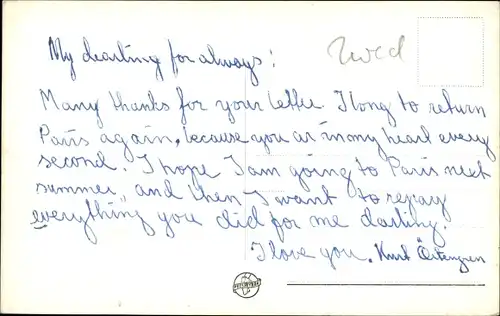 My dearling for always!
Many thanks for your letter. I long to return
Paris again, because you ar in my heart every
second. I hope I am going to Paris next
summer, and then I want to repay
everything you did for me darling.
I love you. Kurt